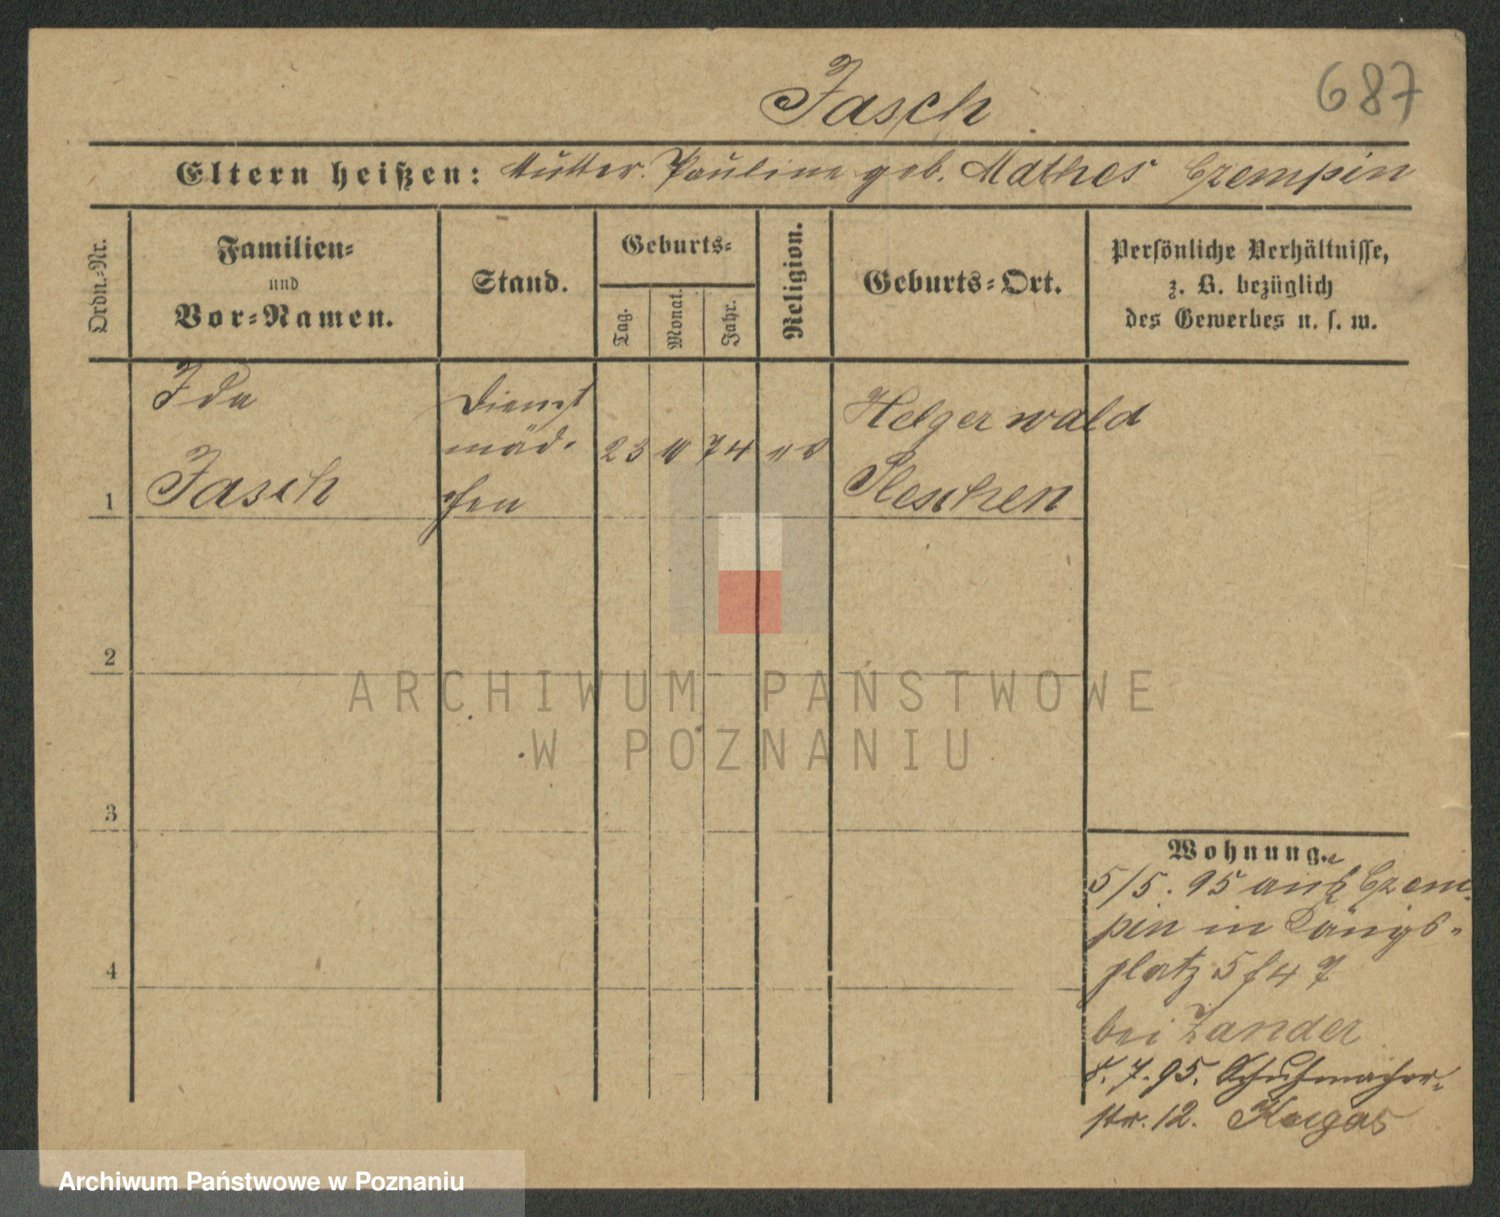 Jasch
687
Eltern heißen: Mutter. Pauline geb. Mathes Czempin
Ordn.-Nr.
Familien-
und
Vor-Namen.
Stand.
Geburts-
Tag.
Monat.
Jahr.
Religion.
Geburts-Ort.
Persönliche Verhältnisse,
z. B. bezüglich
des Gewerbes u. s. w.
1
Ida
Jasch
Dienst
mäd-
chen
23
74
Helgerwald
Pleschen
2
3
4
Wohnung.
5/5. 95 aus Czem-
pin in
platz 5
bei Zander
8. 7. 95. Schuhmacher-
str. 12.
ARCHIWUM PAŃSTWOWE
W POZNANIU
Archiwum Państwowe w Poznaniu